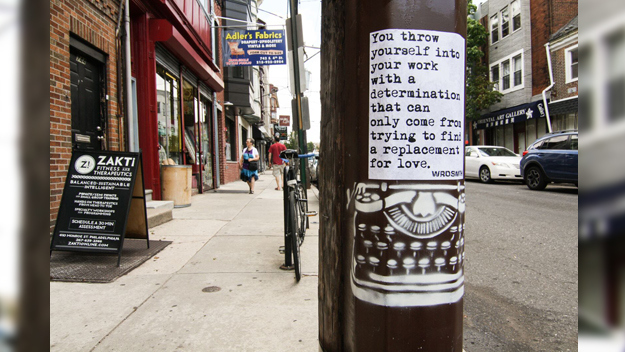 Adler's Fabrics
DRAPERY · UPHOLSTERY
VINYLS & MORE
You throw
yourself into
your work
with a
determination
that can
only come from
trying to find
a replacement
for love.
WRDSMTH
Z!
ZAKTI
FITNESS AND
THERAPEUTICS
BALANCED · SUSTAINABLE
· INTELLIGENT
SCHEDULE A 30 MIN
ASSESSMENT
ZAKTIONLINE.COM
ORIENTAL ART GALLERY